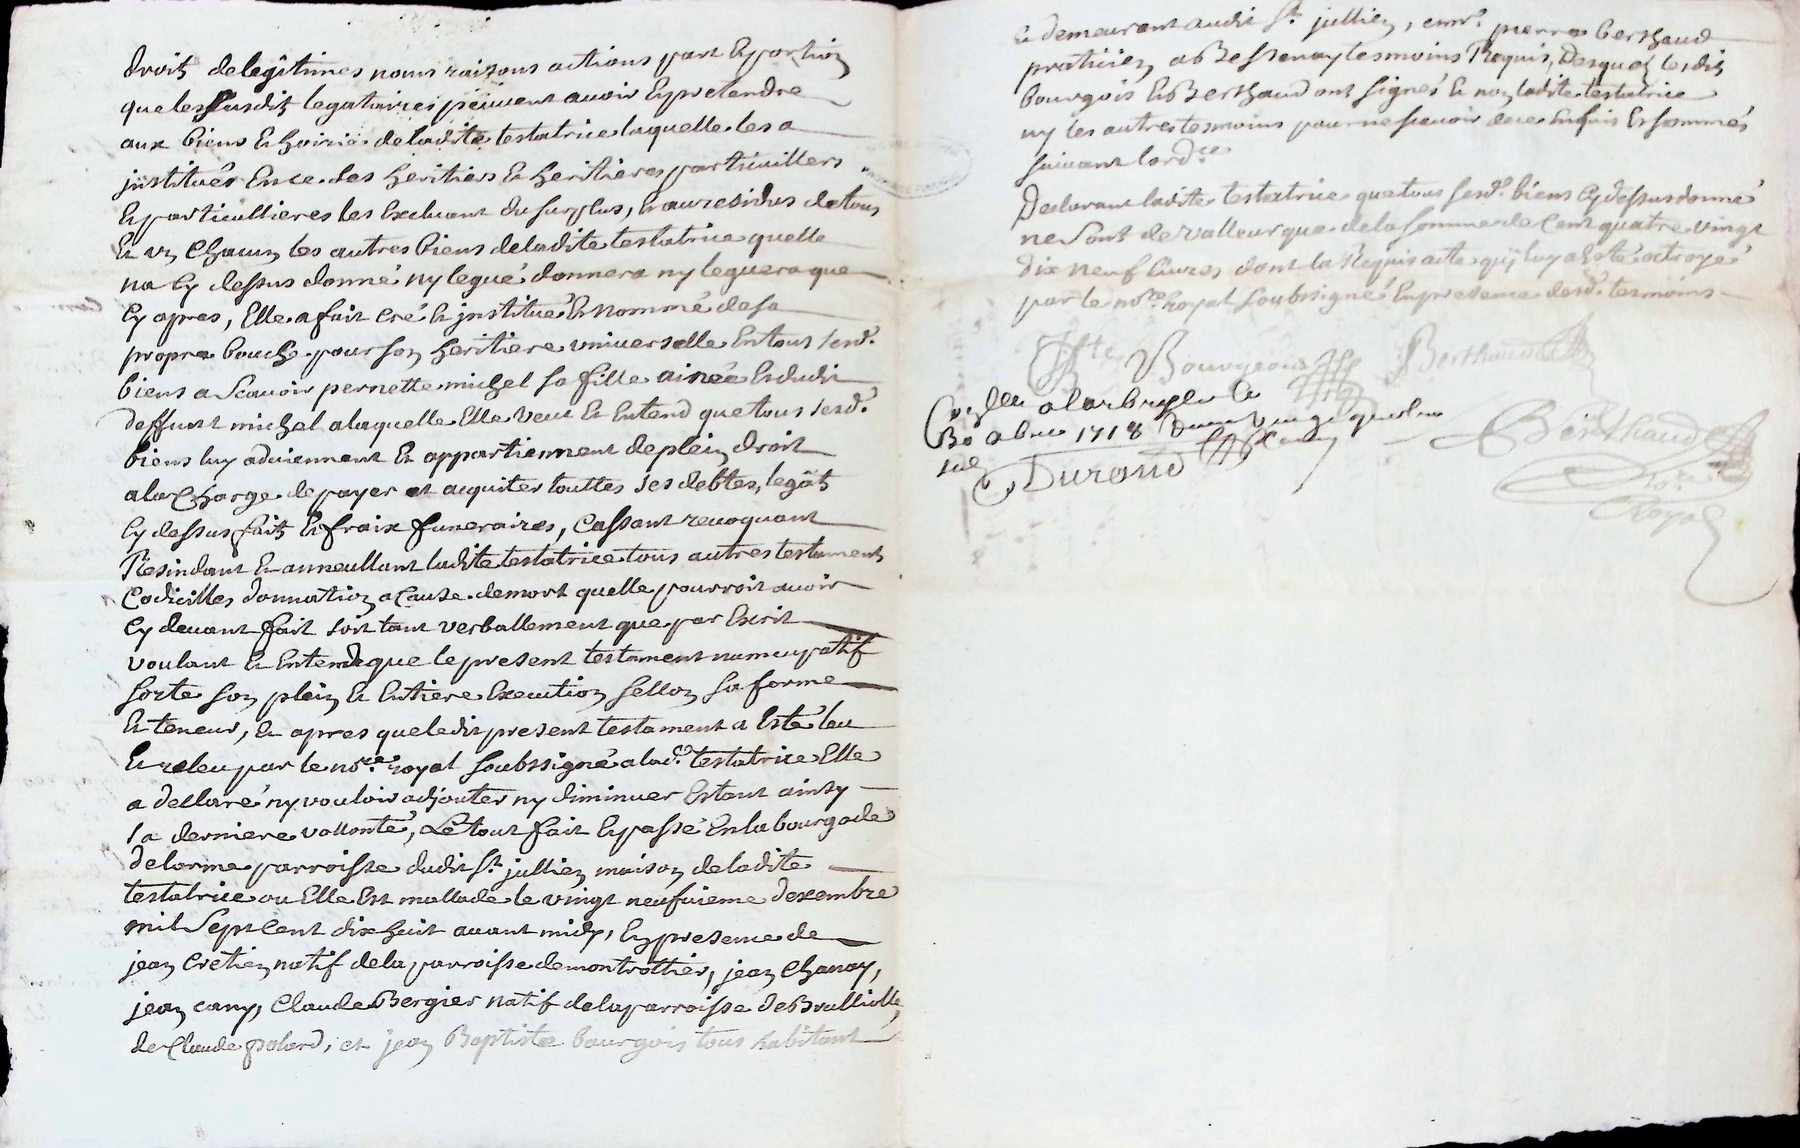 droits de legitimes noms raisons actions part et portion
que lesdusdits legataires peuvent avoir et pretendre
aux biens et hoirie de ladite testatrice laquelle les a
institués en ce ses heritiers et heritieres particuillers
et particullieres les excluant du surplus, et au residus de tous
et un chacun les autres biens de ladite testatrice quelle
na cy dessus donné ny legué donnera ny leguera que
cy apres, Elle a fait créé et institué et nommé de sa
propre bouche pour son heritiere universelle en tous sesd.
biens a scavoir pernette michel sa fille ainée et dudit
deffunt michel a laquelle Elle veut et entend que tous sesd.
biens luy adviennent et appartiennent de plein droit
a la charge de payer et acquiter touttes ses debtes, legats
cy dessus faits et fraix funeraires, cassant revoquant
Resindant et anneullant ladite testatrice tous autres testaments
codicilles donnation a cause de mort quelle pourroit avoir
cy devant fait soit tant verballement que par Escrit
voulant et entend que le present testament nuncupatif
sorte son plein et entiere execution sellon sa forme
et teneur, et apres que ledit present testament a esté leu
et releu par le nore. royal soubssigné a lad. testatrice Elle
a declaré ny vouloir adjouter ny diminuer estant ainsy
sa derniere vollonté, Le tout fait et passé en la bourgade
delorme parroisse dudit St jullien maison de ladite
testatrice ou Elle est mallade le vingt neufvieme dexembre
mil sept cent dix huit avant midy, en presence de
jean cretien natif de la parroisse de montrottier, jean Chanay,
jean cany, Claude Bergier natif de la parroisse de Brulliolle,
de Claude palard, et jean Baptiste bourgois tous habitant
et demeurant audit St jullien, et pierre berthaud
praticien a Bessenay tesmoins Requis, Desquels lesdits
bourgois et Berthaud ont signés et non ladite testatrice
ny les autres tesmoins pour ne scavoir de ce enquis et sommés
suivant lordce.
Declarant ladite testatrice que tous sesd. biens cy dessus donné
ne sont de valleur que de la somme de cent quatre vingt
dix neuf livres dont la Requis acte qui luy a esté octroyé
par le nore. royal soubssigné en presence desd. tesmoins
Bte Bourgeois Berthaud
Conllé a larbresle le
30 xbre 1718
sols
Durand
Berthaud
Nore
Royal